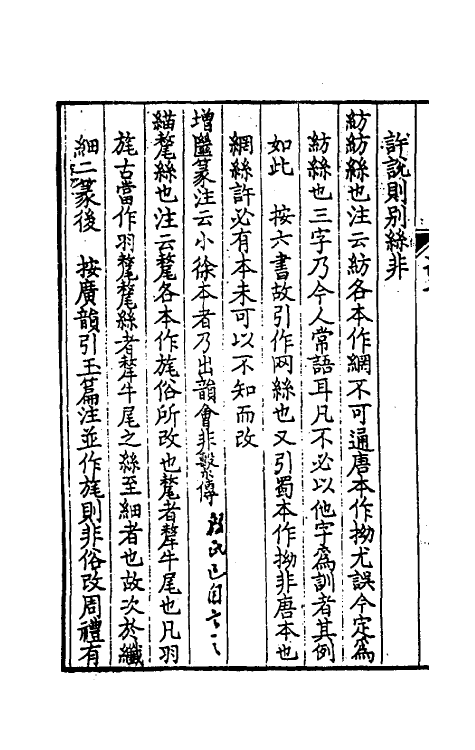 許說則別絲非
紡紡絲也注云紡各本作網不可通唐本作拗尤誤今定爲
紡絲也三字乃今人常語耳凡不必以他字爲訓者其例
如此　按六書故引作网絲也又引蜀本作拗非唐本也
網絲許必有本未可以不知而改
增𨽍篆注云小徐本者乃出韻會非繫傳　段氏已自言之
緢氂絲也注云氂各本作旄俗所改也氂者犛牛尾也凡羽
旄古當作羽氂氂絲者犛牛尾之絲至細者也故次於纖
細二篆後　按廣韻引玉篇注並作旄則非俗改周禮有